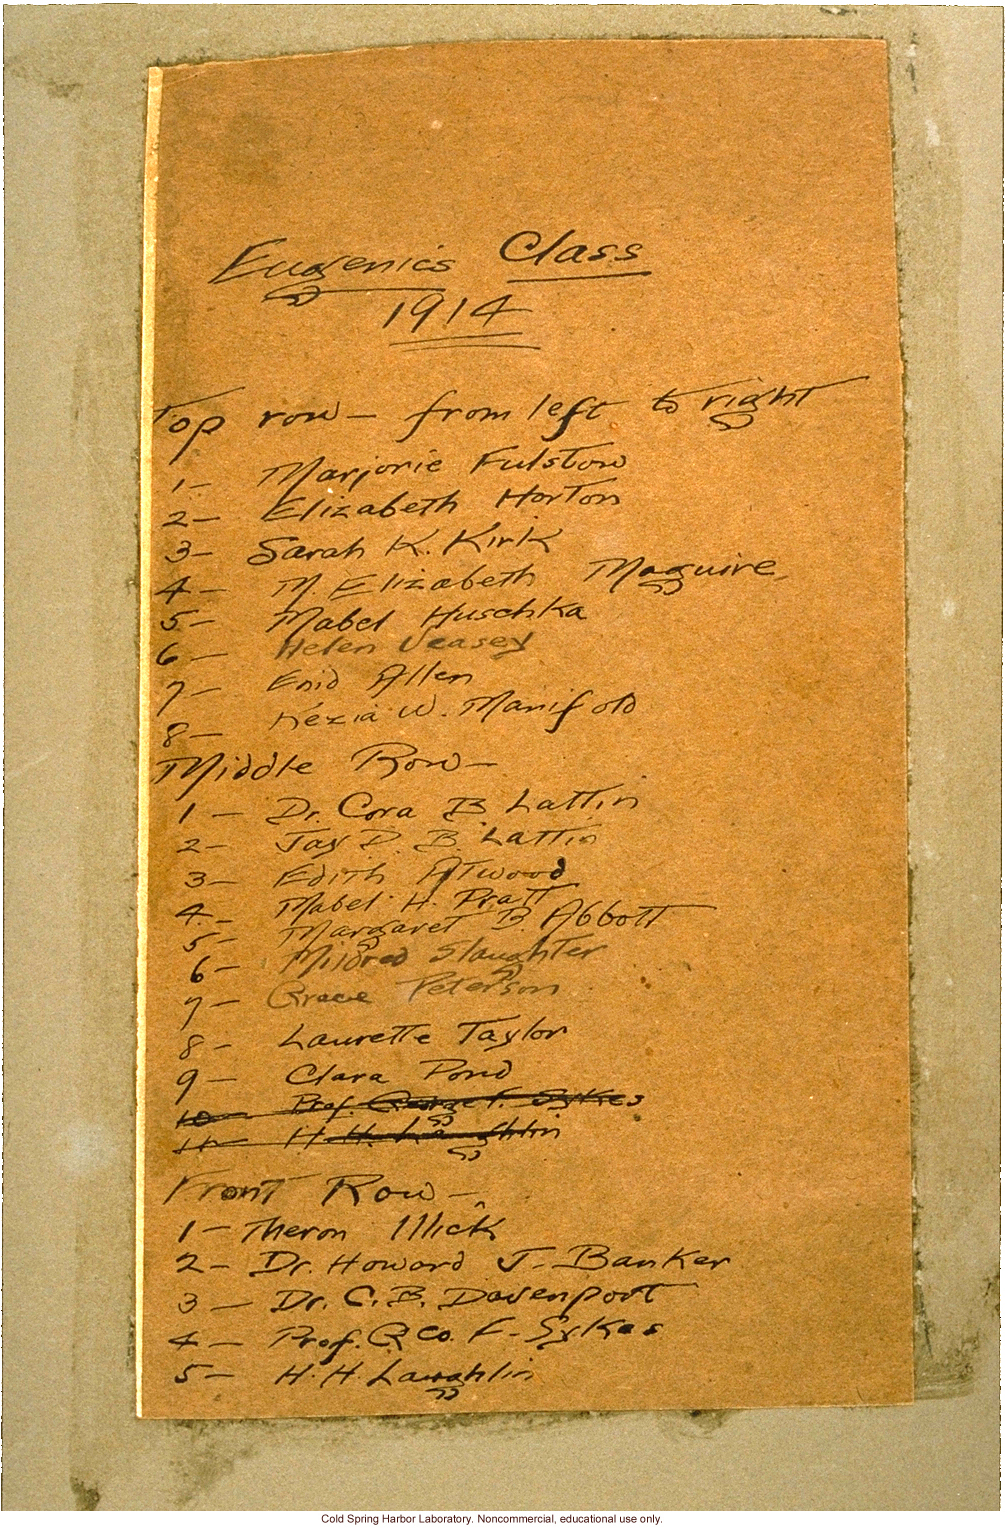 Eugenics Class
1914
Top row — from left to right
1 — Marjorie Fulstow
2 — Elizabeth Horton
3 — Sarah K. Kirk
4 — M. Elizabeth Maguire,
5 — Mabel Huschka
6 — Helen Veasey
7 — Enid Allen
8 — Kezia W. Manifold
Middle Row —
1 — Dr. Cora B. Lattin
2 — Jay D. B. Lattin
3 — Edith Atwood
4 — Mabel H. Pratt
5 — Margaret B. Abbott
6 — Mildred Slaughter
7 — Grace Peterson
8 — Laurette Taylor
9 — Clara Pond
10 — Prof. George F. Sykes
11 — H. H. Laughlin
Front Row —
1 — Theron Illick
2 — Dr. Howard J. Banker
3 — Dr. C. B. Davenport
4 — Prof. Geo. F. Sykes
5 — H. H. Laughlin
Cold Spring Harbor Laboratory. Noncommercial, educational use only.